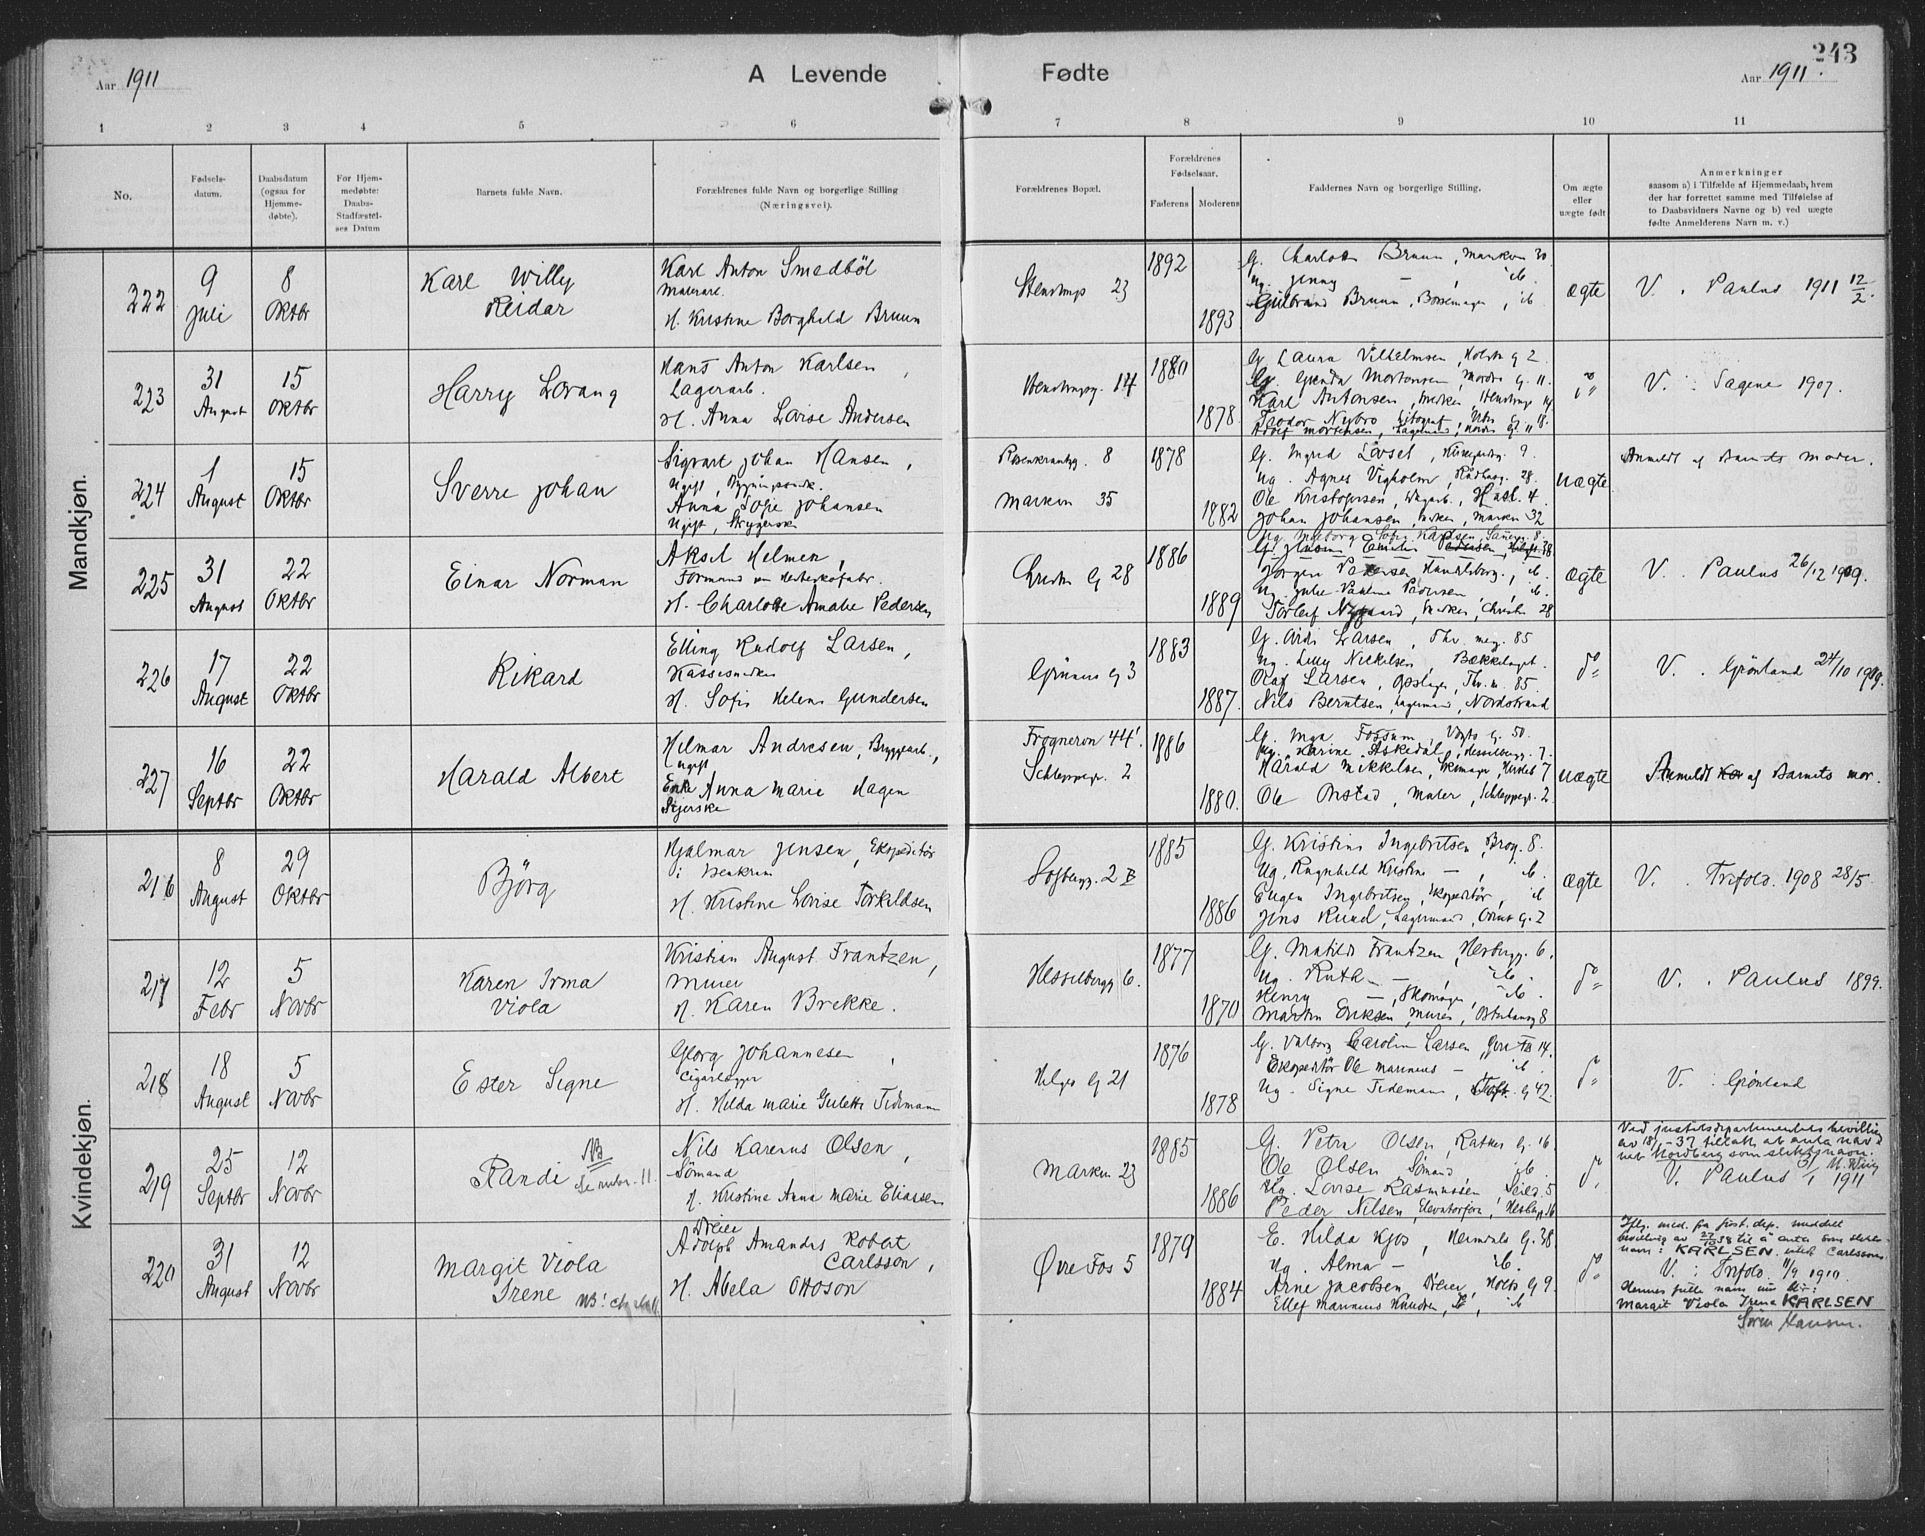 243
Aar 1911
A Levende
Fødte
Aar 1911.
1 2 3 4 5 6 7 8 9 10 11
No.
Fødsels-
datum.
Daabsdatum
(ogsaa for
Hjemme-
døbte).
For Hjem-
medøbte:
Daabs-
Stadfæstel-
ses Datum
Barnets fulde Navn.
Forældrenes fulde Navn og borgerlige Stilling
(Næringsvei).
Forældrenes Bopæl.
Forældrenes
Fødselsaar.
Faderens Moderens
Faddernes Navn og borgerlige Stilling.
Om ægte
eller
uægte født
Anmerkninger
saasom a) i Tilfælde af Hjemmedaab, hvem
der har forrettet samme med Tilføielse af
to Daabsvidners Navne og b) ved uægte
fødte Anmelderens Navn m. v.)
Mandkjøn.
222
9
Juli
8
Oktbr
Karl Willy
Reidar
Karl Anton Smedbøl
Malerarb.
H. Kristine Borghild Bruun
Stenstrups 23
1892
1893
G. Charlotte Bruun, Marken 30
Ug. Jenny — , ib.
Gulbrand Bruun, Børsemager, ib
ægte
V. . Paulus 1911 12/2.
223
31
August
15
Oktbr
Harry Lorang
Hans Anton Karlsen,
Lagerarb.
H. Anna Lovise Andersen
Stenstrupg. 14
1880
1878
G. Laura Vilhelmsen, Holsts g 2.
G. Gunda Mortensen, Nordre G. 11.
Karl Antonsen, Snekker, Stenstrups 14
Teodor Nybro Litograf, 18.
Adolf Mortensen, Lagermand, Nordre G. 11
do
V. : Sagene 1907.
224
1
August
15
Oktbr
Sverre Johan
Sigvart Johan Hansen,
Ugift, Bygningssnedk.
Anna Sofie Johansen
Ugift, Strygerske
Rosenkrantzg. 8
Marken 35
1878
1882
G. Ingrid Løvset, 9.
Ug. Agnes Vigholm, Rådhusg. 28.
Ole Kristofersen, 4.
Johan Johansen, Snekker, Marken 32
uægte
Anmeldt af Barnets Moder.
225
31
August
22
Oktbr
Einar Norman
Aksel Helmen,
Formand ven Hesteskofabr.
H. Charlotte Amalie Pedersen
Christies G 28
1886
1889
Ug Sofie Karlsen, 8
G. Emilie Pedersen, 38
Jørgen Petersen Handelsborg., ib.
Ug. Julie Pauline Pedersen, ib.
Torleif Nygaard, Snekker, Christies 28
ægte
V. . Paulus 26/12 1909.
226
17
August
22
Oktbr
Rikard
Elling Rudolf Larsen,
Kassesnekker
H. Sofie Helene Gundersen
Grüners G 3
1883
1887.
G. Larsen, Thv. meg. 85
Ug. Lilly Nickelsen, Bækkelaget.
Olaf Larsen, Opslager, Thv. m. 85.
Nils Berntsen, Lagermand, Nordstrand
do
V. . Grønland 24/10 1909.
227
16
Septbr
22
Oktbr
Harald Albert
Hilmar Andresen, Bryggearb.,
Ugift
Enke Anna Marie Hagen
Syerske
Frogneren 44.
Schleppegr. 2
1886
1880.
G. Inga Fossum, Vogts G. 50.
Ug. Karine Askedal, Hesselbergg. 7.
Harald Mikkelsen, Skomager, 7
Ole Onstad, Maler, Schleppegr. 2.
uægte
Anmeldt af Barnets Mor.
Kvindekjøn.
216
8
August
29
Oktbr
Bjørg
Hjalmar Jensen, Ekspeditør
i Isenkram
H. Kristine Lovise Torkildsen
Sofbergg. 2 B
1885
1886
G. Kristine Ingebretsen, Brog. 8.
Ug. Ragnhild Kristine — , ib.
Eugen Ingebretsen, Ekspeditør, ib
Jens Ruud, Lagermand, G. 2
ægte
V. . Trefold. 1908 28/5.
217
12
Febr
5
Novbr
Karen Irma
Viola
Kristian August Frantzen,
Murer
H. Karen Brekke.
Hesselbergg 6.
1877
1870
G. Matilde Frantzen, Hesbergg. 6.
Ug. Ruth — , ib.
Henry — , Skomager, ib
Martin Eriksen, Murer, 8
do
V. . Paulus 1899.
218
18
August
5
Novbr
Ester Signe
Georg Johannesen,
Cigarlægger
H. Hilda Marie Gulette Tidemann
Helges G 21
1876
1878
G. Valborg Caroline Larsen, 14.
Ekspeditør Ole Marinius — ib.
Ug. Signe Tidemann, Toft. G 42.
do
V. : Grønland
219
25
Septbr
12
Novbr
Randi
NB
Se anm. 11.
Nils Karenus Olsen,
Sømand
H. Kristine Anna Marie Eliassen
Marken 23
1885
1886
G. Petra Olsen, Ratkes G. 16
Ole Olsen Sømand ib.
Ug. Lovise Rasmussen, 5
Peder Nilsen, Elevatorfører, Hesbgg 16
do
Ved justitsdepartementets bevilling
av 18/1-37 tillatt at anta navnet
Nordberg som slektsnavn.
V. Paulus 1911
220
31
August
12
Novbr
Margit Viola
Irene
Dreier
Adolph Amandus Robert
Carlsson,
H. Abela Ottoson
Øvre Fos 5
1879
1884
E. Hilda Kjos, Heimdals G. 38
Ug. Alma — ib.
Arne Jacobsen Dreier, Holsts G 9.
Ellef Marinius Knudsen, ib
do
Iflg. med. fra just. dep. meddelt
bevilling av 27/10 38 til å anta som slekts-
navn: KARLSEN istd. Carlsson.
V. : Trefold. 11/9 1910.
Hennes fulle navn nu blir:
Margit Viola Irene KARLSEN
Søren Hansen.